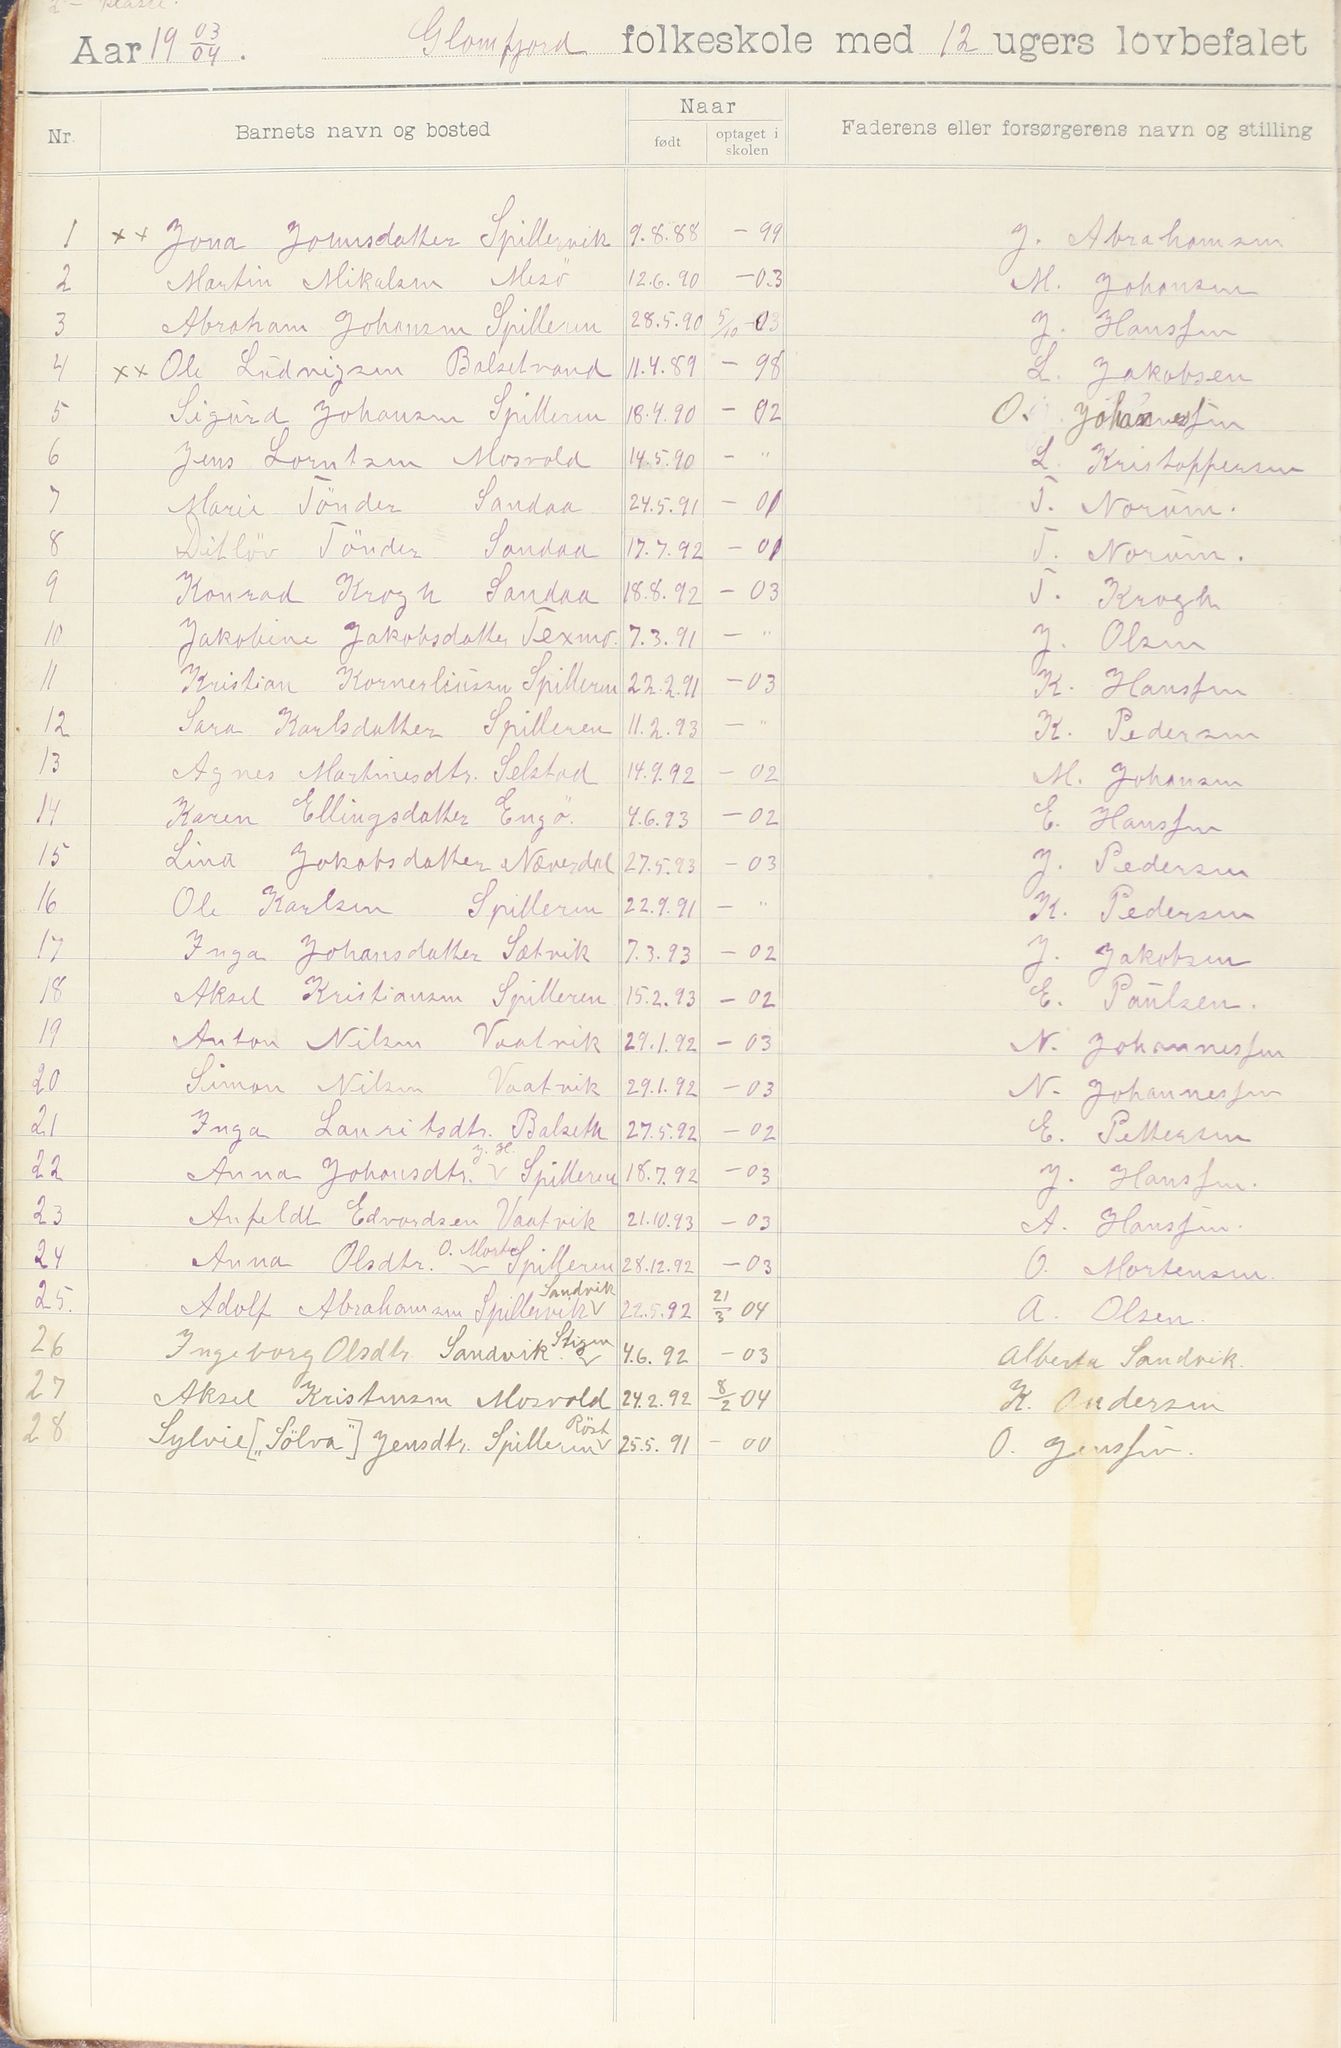 2 - klasse.
Aar 19 03/04. Glomfjord folkeskole med 12 ugers lovbefalet
Naar
Nr. Barnets navn og bosted født optaget i skolen Faderens eller forsørgerens navn og stilling
1 ×× Jona Jonnsdatter Spillervik 9.8.88 - 99 J. Abrahamsen
2 Martin Mikalsen Mesö 12.6.90 - 03 M. Johansen
3 Abraham Johansen Spilleren 28.5.90 5/10 - 03 J. Hanssen
4 ×× Ole Ludvigsen Balsetvand 11.4.89 - 98 L. Jakobsen
5 Sigurd Johansen Spilleren 18.4.90 - 02 O. Johannessen
6 Jens Lorntsen Mosvold 14.5.90 - " L. Kristoppersen
7 Marie Tönder Sandaa 24.5.91 - 01 T. Norum.
8 Ditlöv Tönder Sandaa 17.7.92 - 01 T. Norum.
9 Konrad Krogh Sandaa 18.8.92 - 03 T. Krogh
10 Jakobine Jakobsdatter Texmo. 7.3.91 - " J. Olsen
11 Kristian Kornerliussen Spilleren 22.2.91 - 03 K. Hanssen
12 Sara Karlsdatter Spilleren 11.2.93 - " K. Pedersen
13 Agnes Martinesdtr. Selstad 14.9.92 - 02 M. Johansen
14 Karen Ellingsdatter Engö. 4.6.93 - 02 E. Hanssen
15 Lina Jakobsdatter Næverdal 27.5.93 - 03 J. Pedersen
16 Ole Karlsen Spilleren 22.9.91 - " K. Pedersen
17 Inga Johansdatter Sætvik 7.3.93 - 02 J. Jakobsen
18 Aksel Kristiansen Spilleren 15.2.93 - 02 E. Paulsen.
19 Anton Nilsen Vaatvik 29.1.92 - 03 N. Johannessen
20 Simon Nilsen Vaatvik 29.1.92 - 03 N. Johannessen
21 Inga Lauritsdtr. Balseth 27.5.92 - 02 E. Pettersen
22 Anna Johansdtr. J. H. Spilleren 18.7.92 - 03 J. Hanssen.
23 Anfeldt Edvardsen Vaatvik 21.10.93 - 03 A. Hanssen.
24 Anna Olsdtr. O. Morts Spilleren 28.12.92 - 03 O. Mortensen.
25. Adolf Abrahamsen Spillervik Sandvik 22.5.92 21/3 04 A. Olsen.
26 Ingeborg Olsdtr. Sandvik. Stigen 4.6.92 - 03 Alberta Sandvik.
27 Aksel Kristensen Mosvold 24.2.92 8/2 04 K. Andersen
28 Sylvie ["Sölva"] Jensdtr. Spilleren Röst 25.5.91 - 00 O. Jenssen.